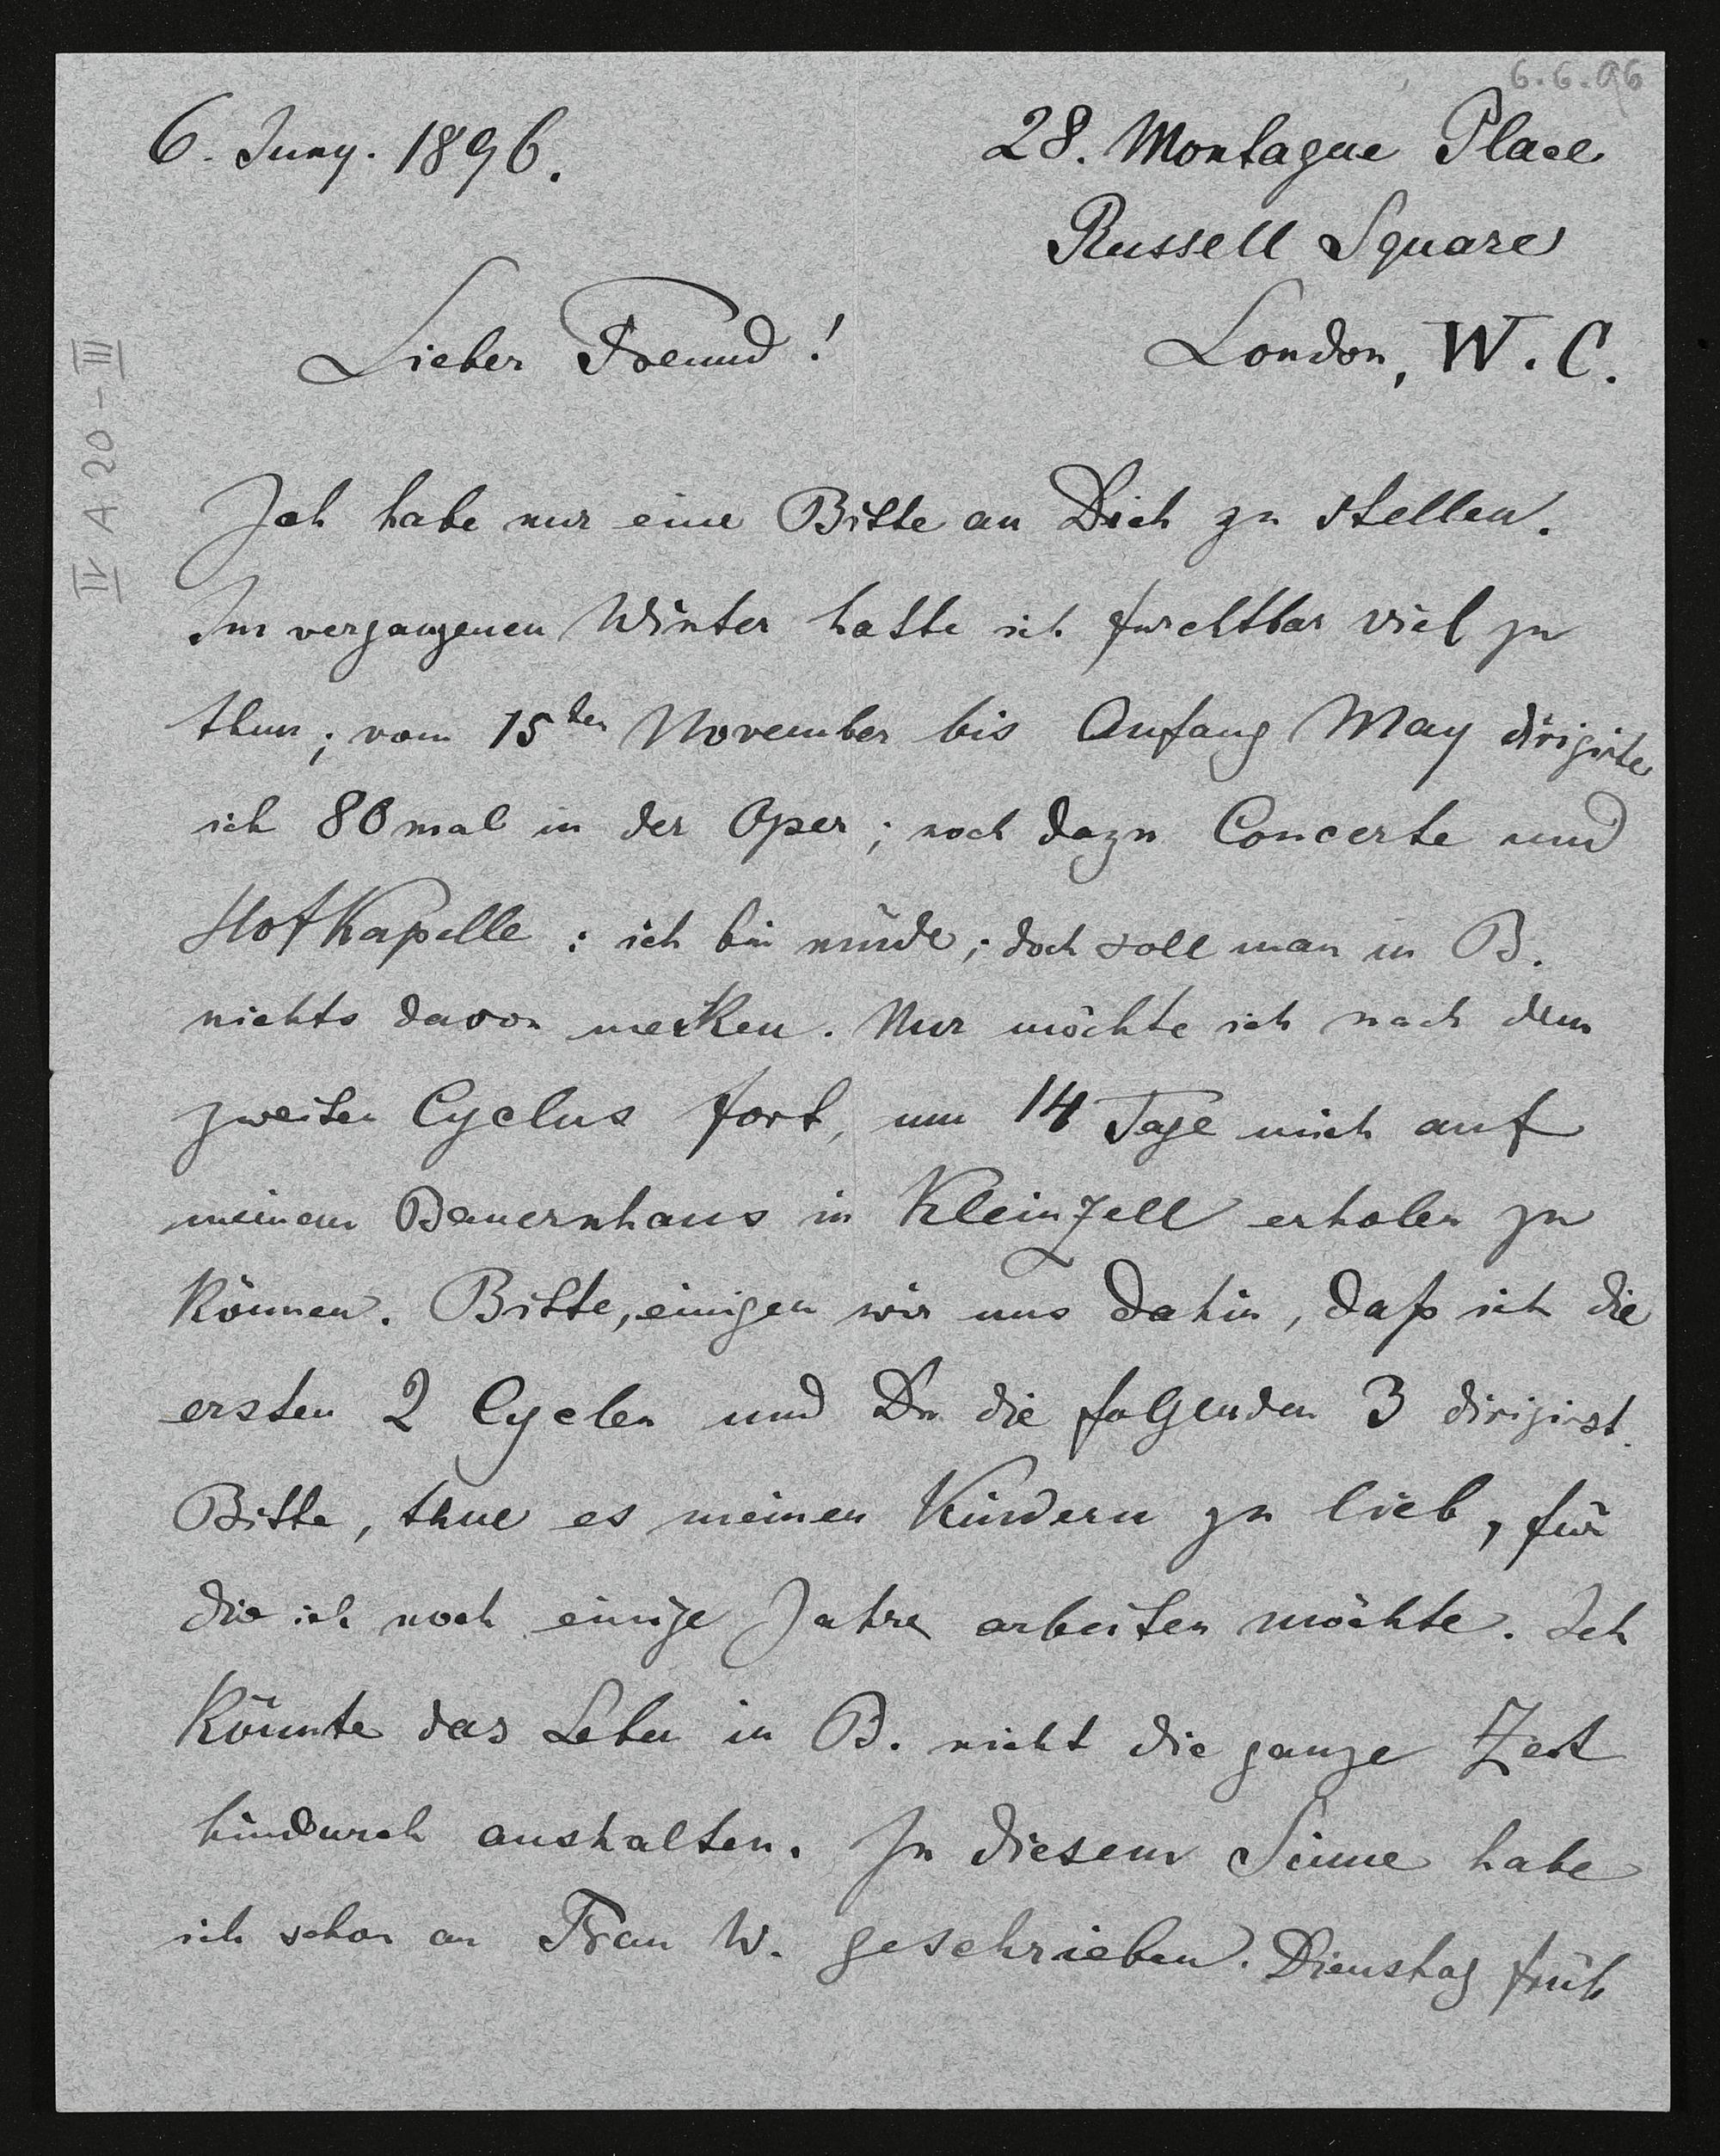 6.6.96
6. Juny. 1896.
28. Montague Place
Russell Square
Lieber Freund!
London, W. C.
IV A 20 - III
Ich habe nur eine Bitte an Dich zu stellen.
Im vergangenen Winter hatte ich furchtbar viel zu
thun; vom 15ten November bis Anfang May dirigirte
ich 80mal in der Oper; noch dazu Concerte und
HofKapelle: ich bin müde; doch soll man in B.
nichts davon merken. Nur möchte ich nach dem
zweiten Cyclus fort, um 14 Tage mich auf
meinem Bauernhaus in Kleinzell erholen zu
können. Bitte, einigen wir uns dahin, daß ich die
ersten 2 Cyclen und Du die folgenden 3 dirigirst.
Bitte, thue es meinen Kindern zu lieb, für
die ich noch einige Jahre arbeiten möchte. Ich
könnte das Leben in B. nicht die ganze Zeit
hindurch aushalten. In diesem Sinne habe
ich schon an Frau W. geschrieben. Dienstag früh